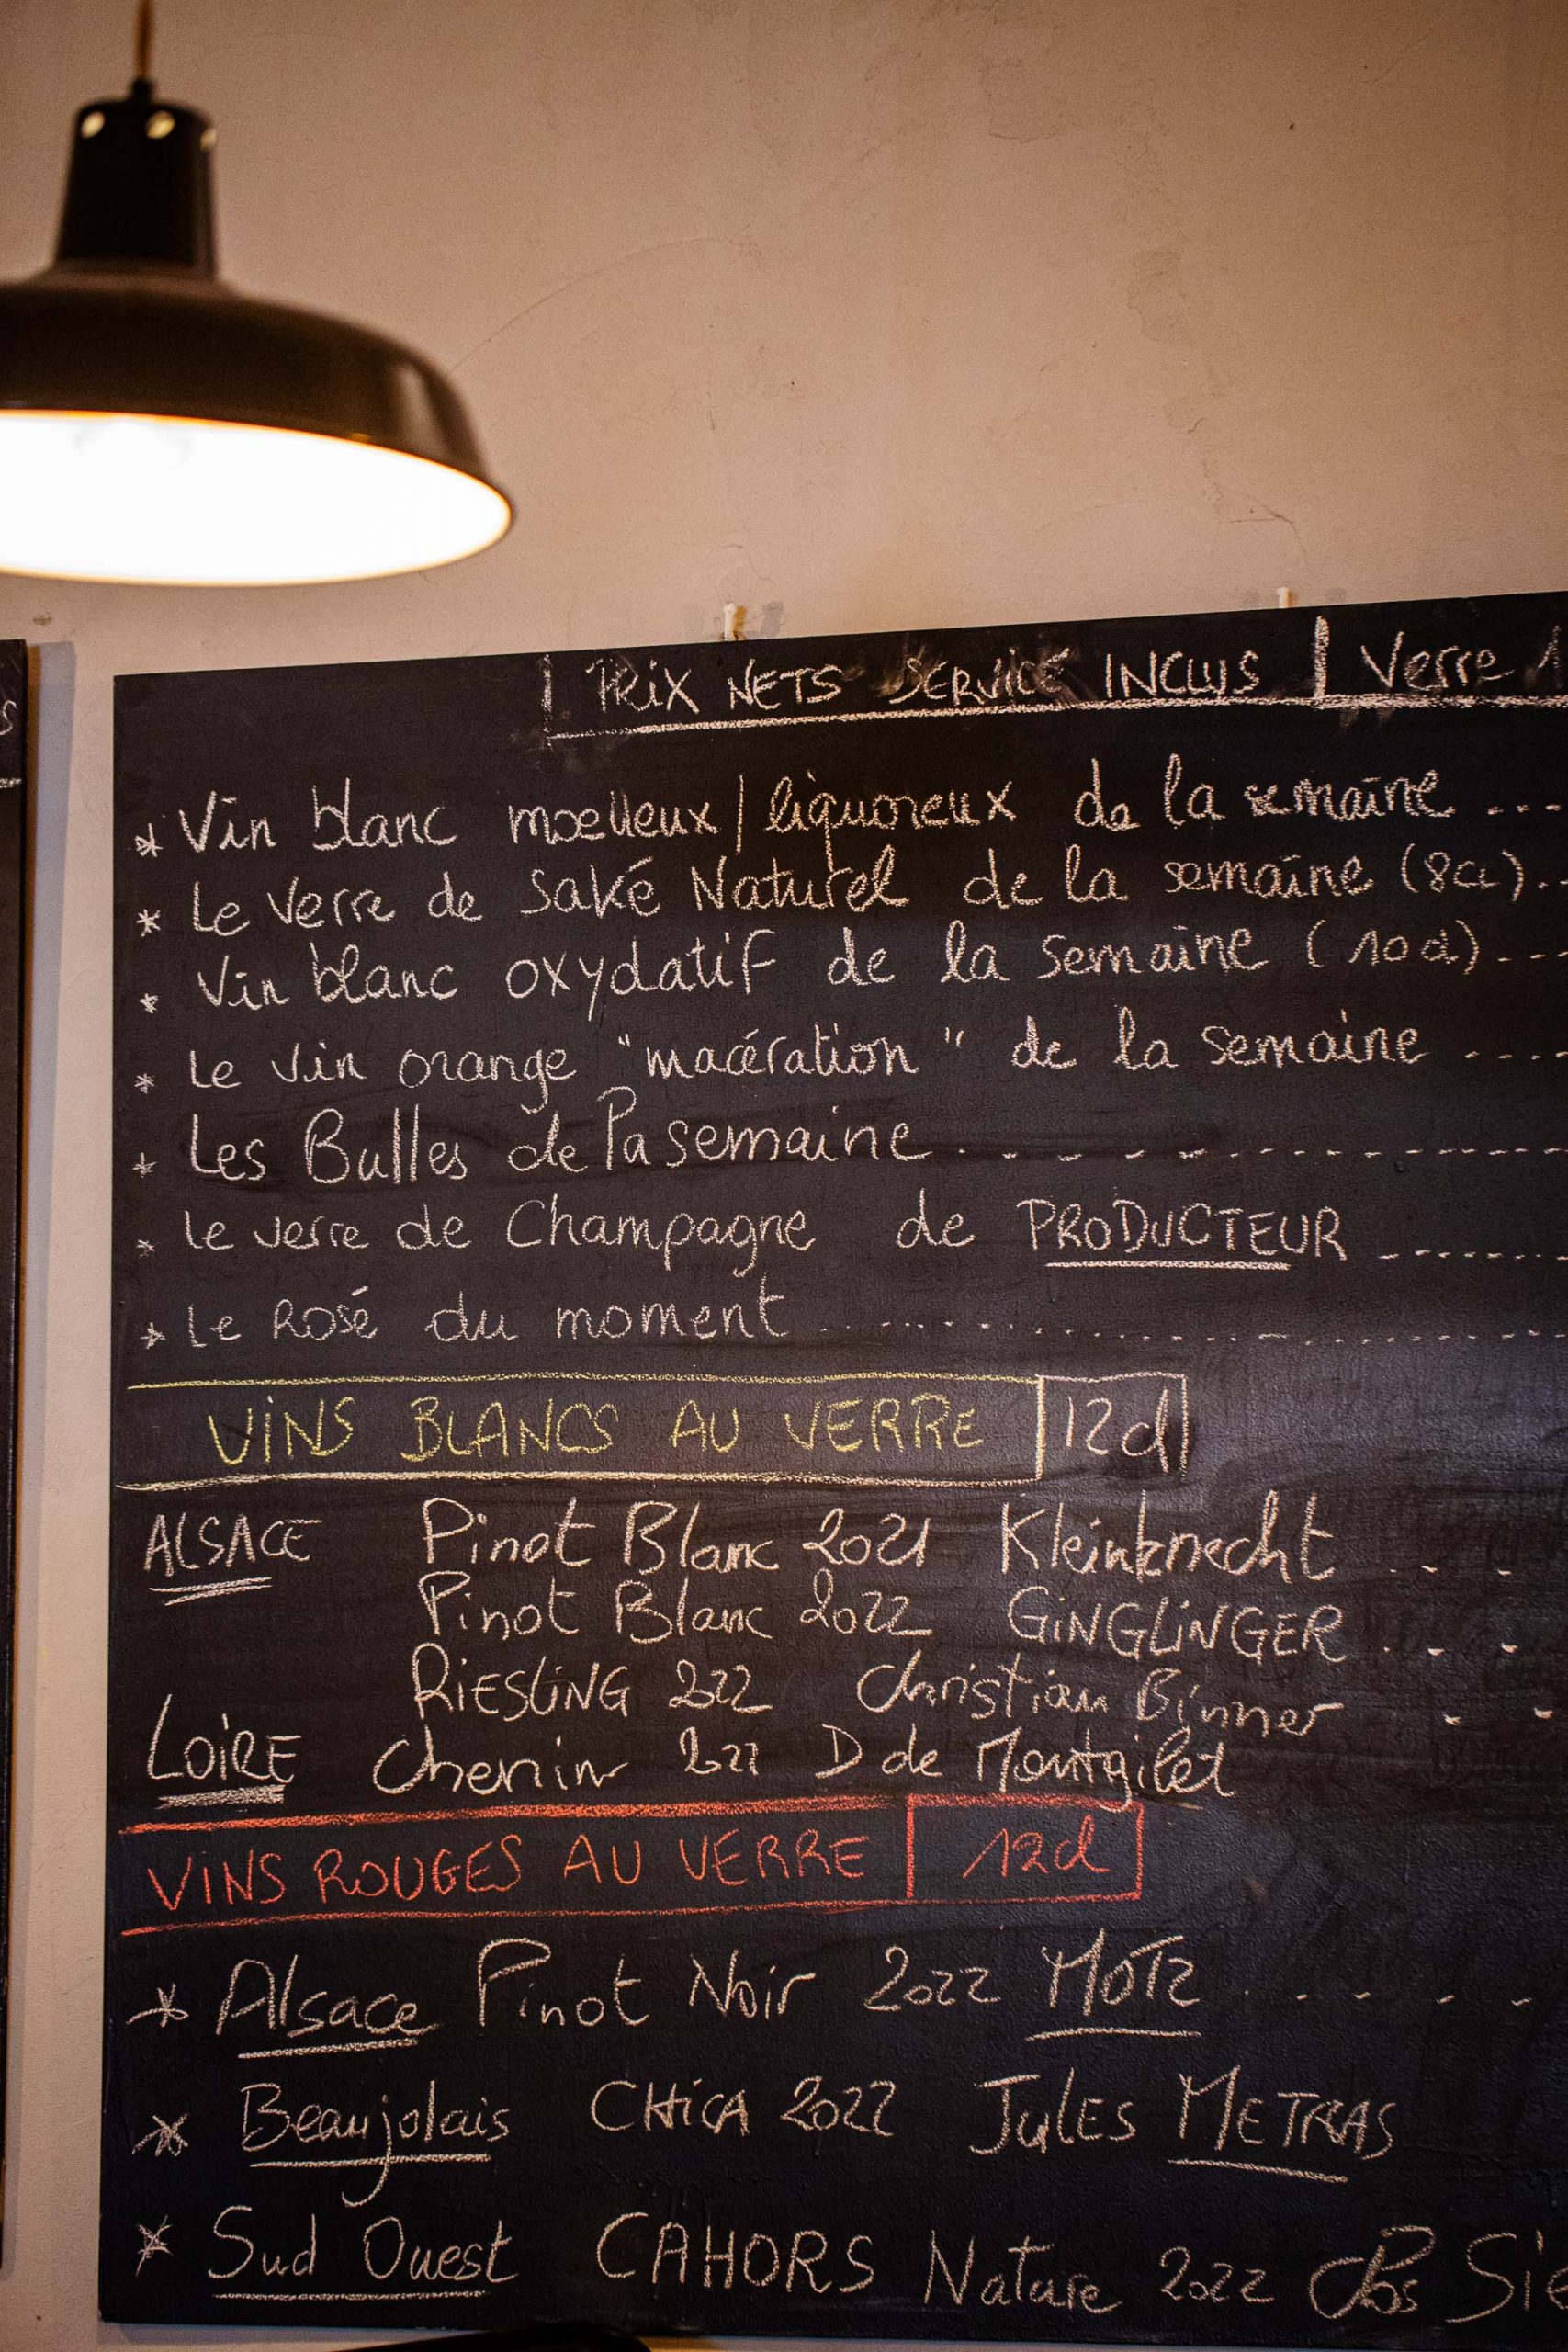 PRIX NETS SERVICE INCLUS | Verre
* Vin blanc moelleux / liquoreux de la semaine ...
* Le verre de Saké Naturel de la semaine (8cl)...
* Vin blanc oxydatif de la semaine (10cl)...
* Le vin orange "macération" de la semaine ....
* Les Bulles de la semaine ..........
* Le verre de Champagne de PRODUCTEUR ........
* Le Rosé du moment ..........
VINS BLANCS AU VERRE | 12cl
ALSACE Pinot Blanc 2021 Kleinknecht ...
Pinot Blanc 2022 GINGLINGER ...
RIESLING 2022 Christian Binner ..
LOIRE Chenin D de Montgilet
VINS ROUGES AU VERRE | 12cl
* Alsace Pinot Noir 2022 MOTZ .....
* Beaujolais CHICA 2022 JULES METRAS
* Sud Ouest CAHORS Nature 2022